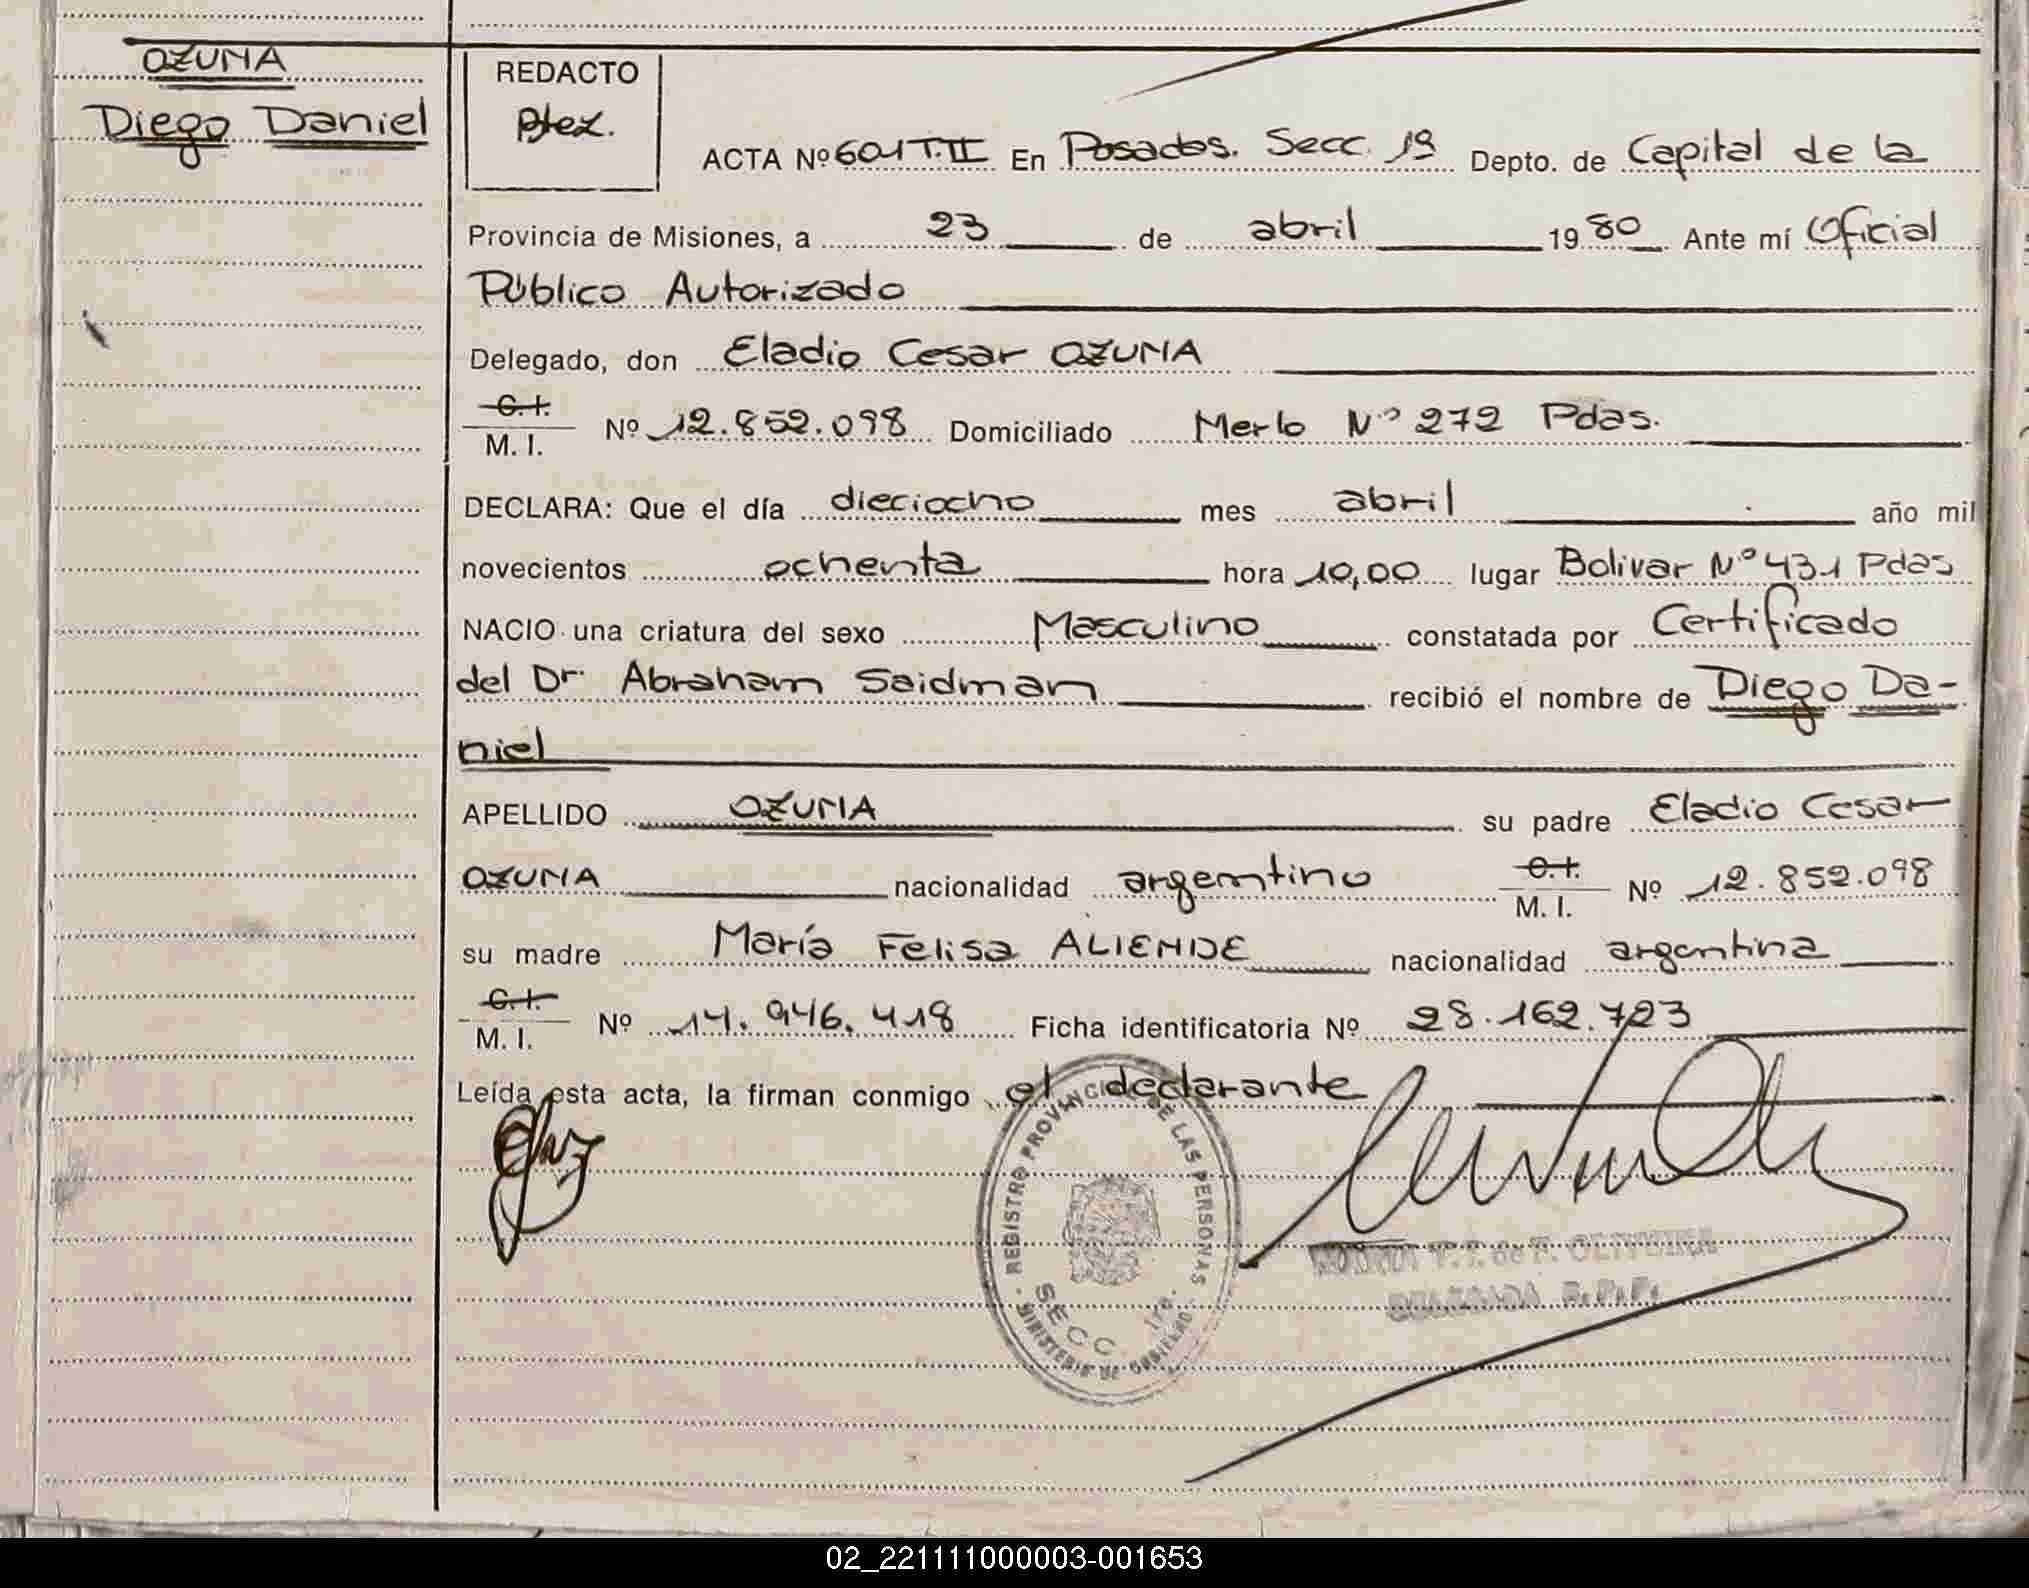 OZUNA
Diego Daniel
REDACTO
ACTA Nº 601 T.II En Posadas. Secc. 1ª Depto. de Capital de la
Provincia de Misiones, a 23 de abril 1980 Ante mí Oficial
Público Autorizado
Delegado, don Eladio Cesar OZUNA
C.I.
M. I. Nº 12.852.098 Domiciliado Merlo Nº 272 Pdas.
DECLARA: Que el día dieciocho mes abril año mil
novecientos ochenta hora 10,00 lugar Bolivar Nº 431 Pdas
NACIO una criatura del sexo Masculino constatada por Certificado
del Dr. Abraham Saidman recibió el nombre de Diego Da-
niel
APELLIDO OZUNA su padre Eladio Cesar
OZUNA nacionalidad argentino C.I. M. I. Nº 12.852.098
su madre María Felisa ALIENDE nacionalidad argentina
C.I.
M. I. Nº 14.946.418 Ficha identificatoria Nº 28.162.723
Leída esta acta, la firman conmigo el declarante
REGISTRO PROVINCIAL DE LAS PERSONAS
SECC. 1ra.
MINISTERIO DE GOBIERNO
OLIVEIRA
02_221111000003-001653